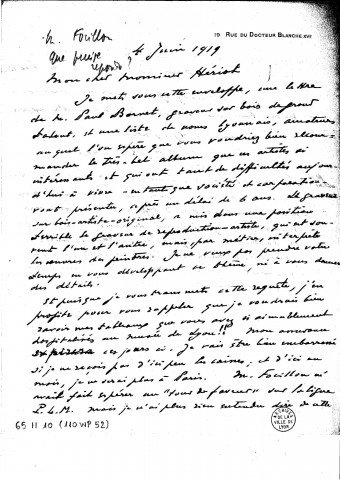 19 RUE DU DOCTEUR BLANCHE. XVI
M. Focillon
que puis-je
répondre
4 Juin 1919
Mon cher Monsieur Hériot
Je mets sous cette enveloppe, une lettre
de M. Paul Bornet, graveur sur bois de grand
talent, et une liste de noms Lyonnais, amateurs
auquel l'on espère que vous voudriez bien recom-
mander le très-bel album que ces artistes si
intéressants et qui ont tant de difficultés aujour-
d'hui à vivre - en tant que société et corporation -
vont présenter, après un délai de 6 ans. Le graveur
sur bois-artiste-original, a mis dans une position
terrible le graveur de reproduction-artiste, qui ont sou-
vent l'un et l'autre, mais par métier, interprété
les œuvres de peintres. Je ne veux pas prendre votre
temps en vous développant ce thème, ni à vous donner
des détails.
Et puisque je vous transmets cette requête, j'en
profite pour vous rappeler que je voudrais bien
ravoir mes tableaux que vous avez si aimablement
hospitalisés au musée de Lyon!! Mon assurance
ces jours ci. Je vais être bien embarrassé
si je ne reçois pas d'ici peu les caisses, et d'ici un
mois, je ne serai plus à Paris. M. Focillon m'
avait fait espérer un "tour de faveur" sur la ligne
P.L.M. mais je n'ai plus rien entendu dire de cette
65 II 10 (110 WP 52)
ARCHIVES
DE LA
VILLE DE
LYON